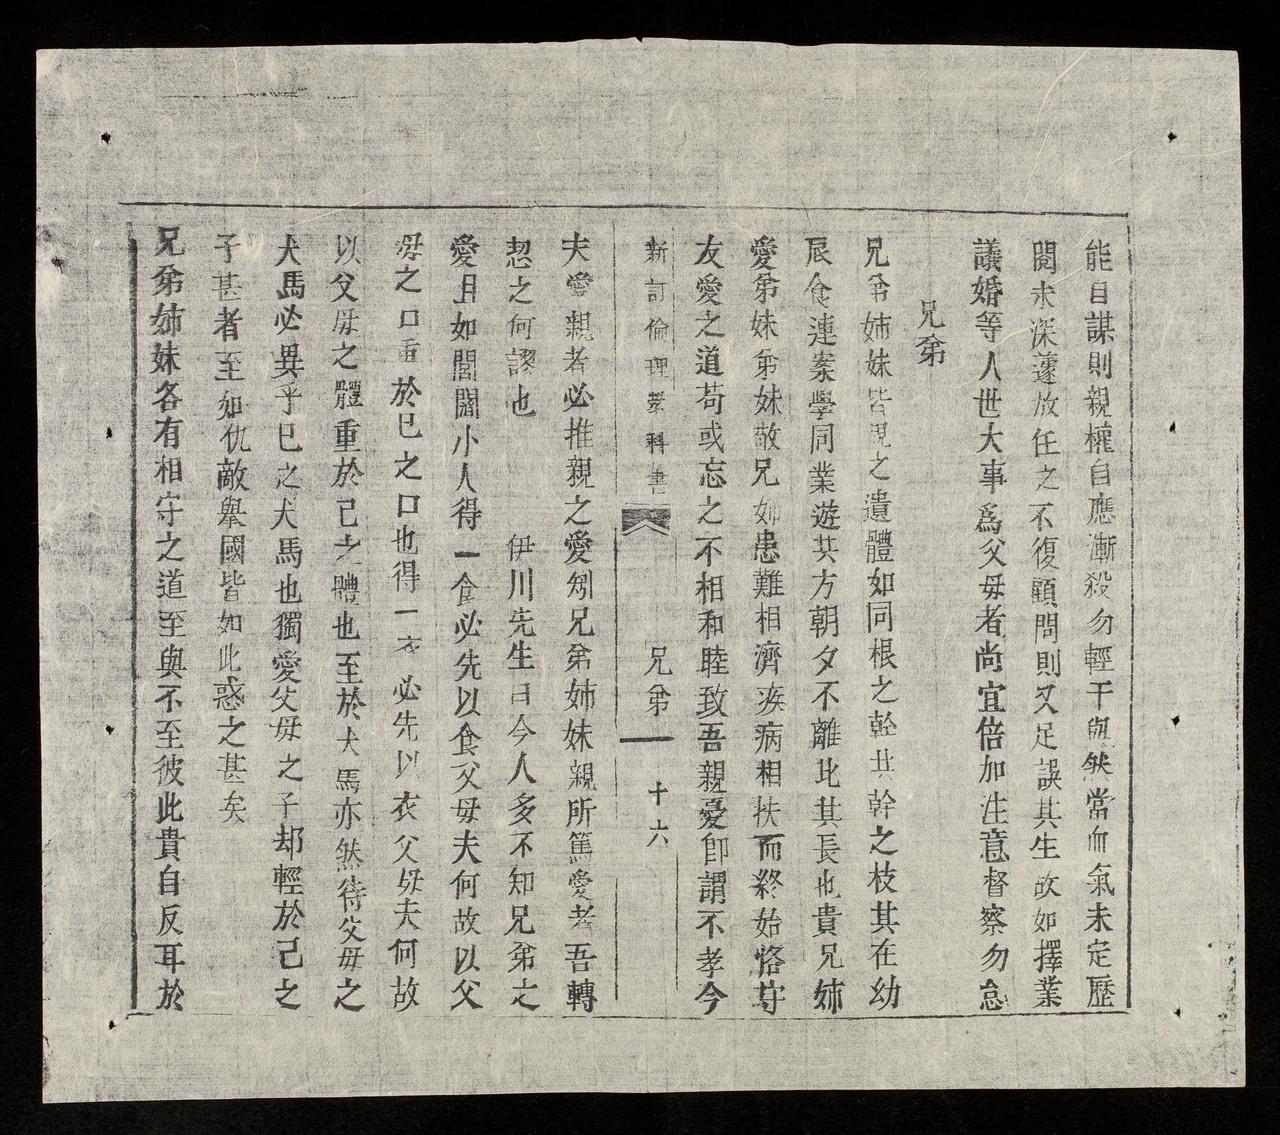 能自謀則親權自應漸殺勿輕干與然當血氣未定歷
閱未深遽放任之不復顧問則又足誤其生故如擇業
議婚等人世大事爲父母者尚宜倍加注意督察勿怠
兄弟
兄弟姊妹皆親之遺體如同根之幹共幹之枝其在幼
辰食連案學同業遊共方朝夕不離比其長也貴兄姊
愛弟妹弟妹敬兄姊患難相濟疾病相扶而終始恪守
友愛之道苟或忘之不相和睦致吾親憂卽謂不孝今
新訂倫理敎科書 兄弟 十六
夫愛親者必推親之愛矧兄弟姊妹親所篤愛者吾轉
恝之何謬也 伊川先生曰今人多不知兄弟之
愛且如閭閻小人得一食必先以食父母夫何故以父
母之口重於己之口也得一衣必先以衣父母夫何故
以父母之體重於己之體也至於犬馬亦然待父母之
犬馬必異乎己之犬馬也獨愛父母之子却輕於己之
子甚者至如仇敵舉國皆如此惑之甚矣
兄弟姊妹各有相守之道至與不至彼此貴自反耳於